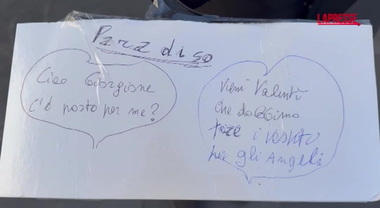 LAPRESSE
Paradiso
Ciao Giorgione
c'è posto per me?
Vieni Valentì
che dobbiamo
fare i vestiti
per gli Angeli